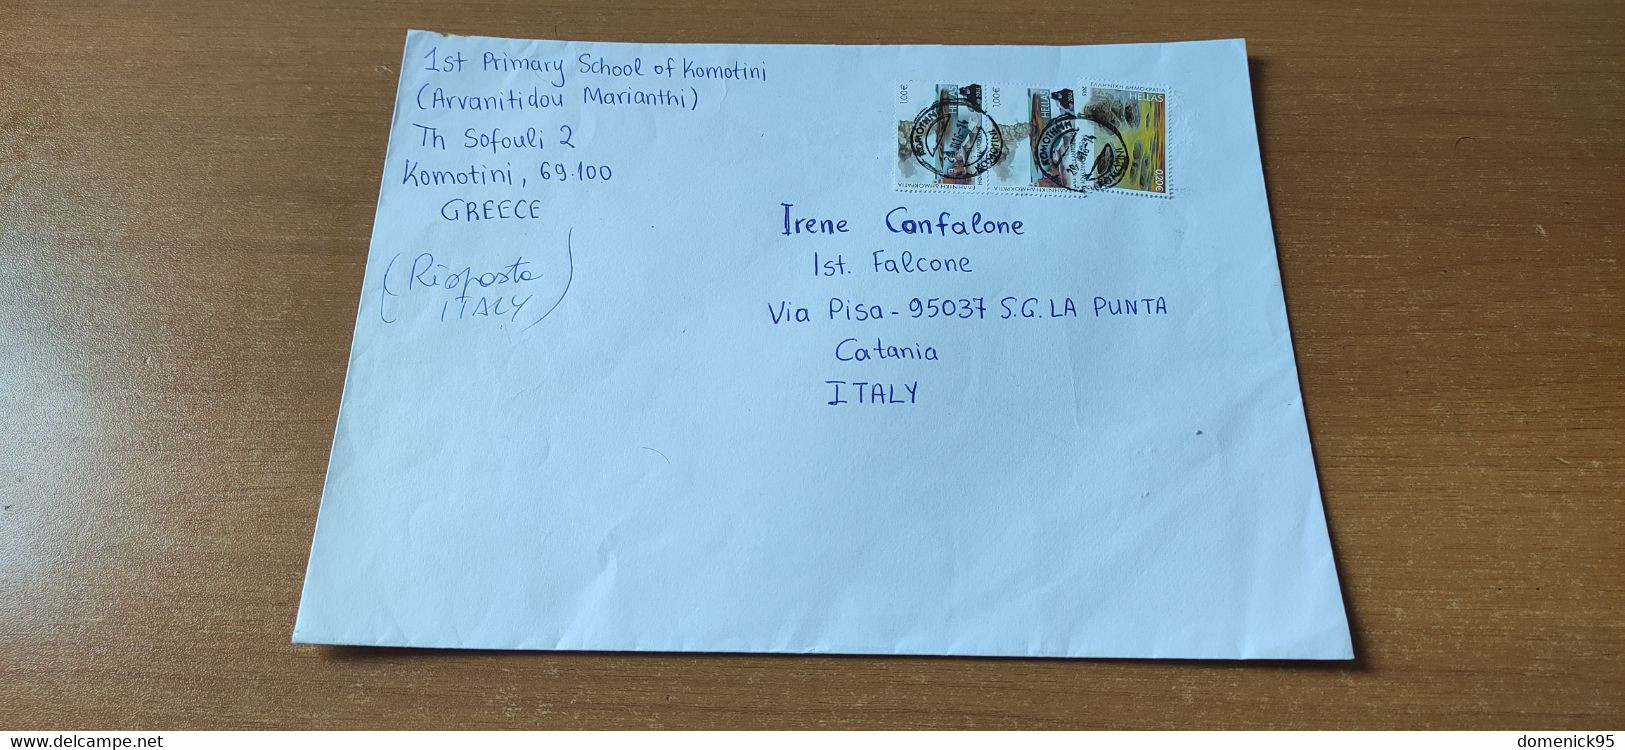 1st Primary School of Komotini
(Arvanitidou Marianthi)
Th Sofouli 2
Komotini, 69.100
GREECE
(Risposta
ITALY)
1,00€
HELLAS
ΕΛΛΗΝΙΚΗ ΔΗΜΟΚΡΑΤΙΑ
1,00€
HELLAS
ΕΛΛΗΝΙΚΗ ΔΗΜΟΚΡΑΤΙΑ
ΕΛΛΗΝΙΚΗ ΔΗΜΟΚΡΑΤΙΑ
HELLAS
0,20€
ΚΟΜΟΤΗΝΗ
KOMOTINI
ΚΟΜΟΤΗΝΗ
Irene Confalone
Ist. Falcone
Via Pisa - 95037 S.G. LA PUNTA
Catania
ITALY
www.delcampe.net
domenick95